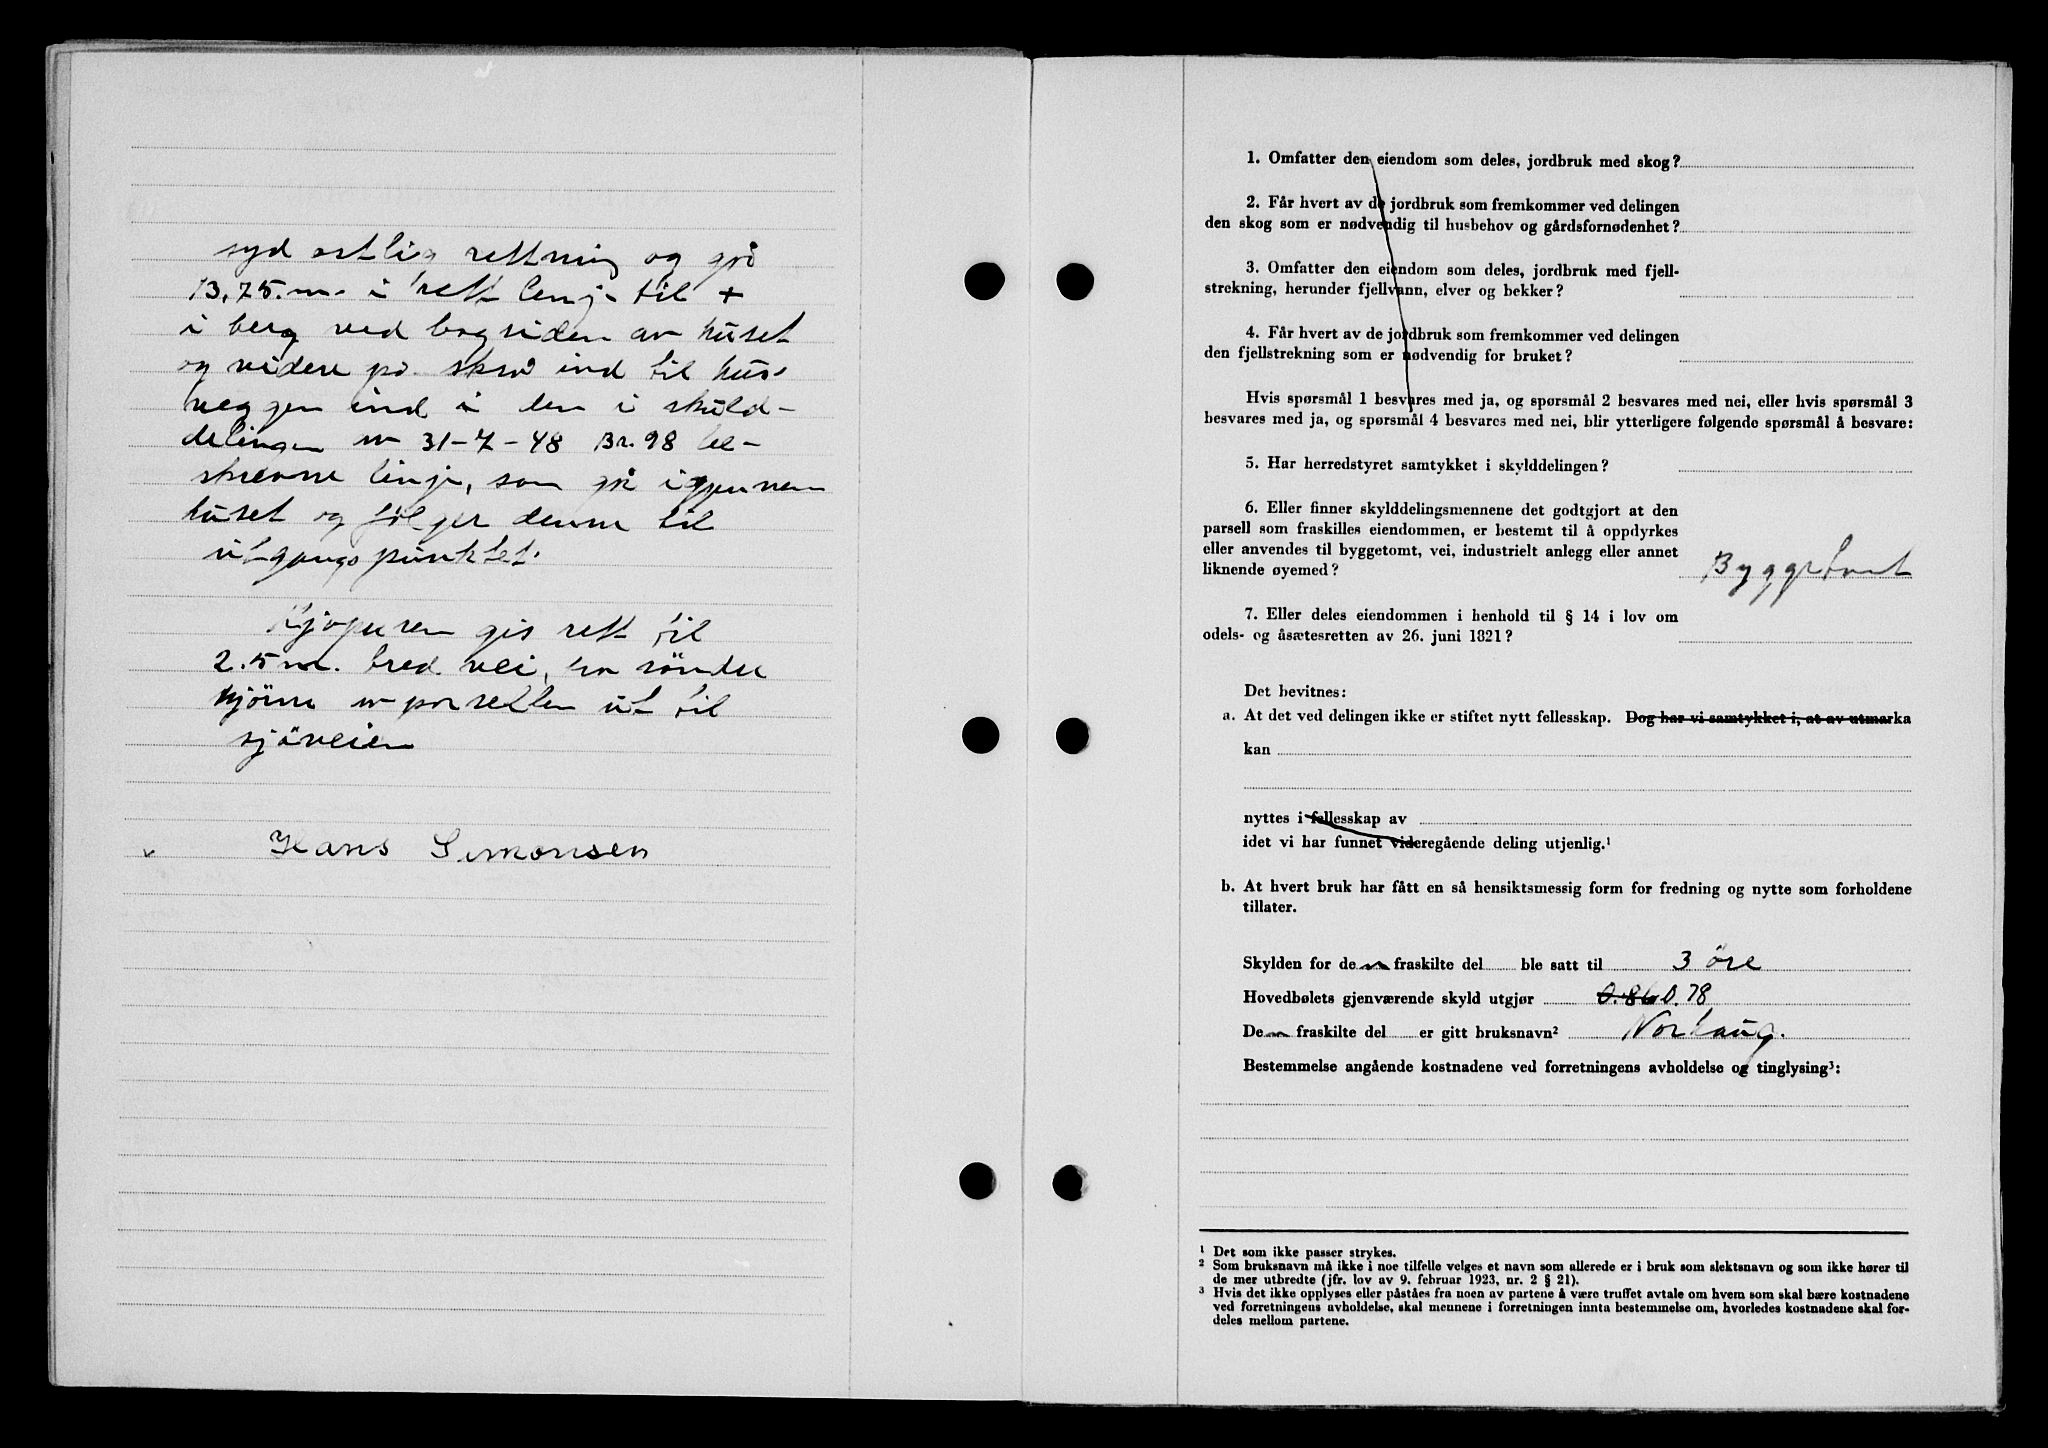 syd østlig rettning og går
13,75 m. i rett linje til +
i berg ved bogsiden av huset
og videre på skrå ind til hus-
veggen ind i den i skuld-
delingen av 31-7-48 Br. 98 be-
skrevne linje, som går igjennem
huset og følger denne til
utgangspunktet.
Kjøperen gis rett til
2.5 m. bred vei, fra söndre
hjörne av parsellen ut til
sjöveien
Hans Simonsen
1. Omfatter den eiendom som deles, jordbruk med skog?
2. Får hvert av de jordbruk som fremkommer ved delingen
den skog som er nødvendig til husbehov og gårdsfornødenhet?
3. Omfatter den eiendom som deles, jordbruk med fjell-
strekning, herunder fjellvann, elver og bekker?
4. Får hvert av de jordbruk som fremkommer ved delingen
den fjellstrekning som er nødvendig for bruket?
Hvis spørsmål 1 besvares med ja, og spørsmål 2 besvares med nei, eller hvis spørsmål 3
besvares med ja, og spørsmål 4 besvares med nei, blir ytterligere følgende spørsmål å besvare:
5. Har herredstyret samtykket i skylddelingen?
6. Eller finner skylddelingsmennene det godtgjort at den
parsell som fraskilles eiendommen, er bestemt til å oppdyrkes
eller anvendes til byggetomt, vei, industrielt anlegg eller annet
liknende øyemed? Byggetomt
7. Eller deles eiendommen i henhold til § 14 i lov om
odels- og åsætesretten av 26. juni 1821?
Det bevitnes:
a. At det ved delingen ikke er stiftet nytt fellesskap. Dog har vi samtykket i, at av utmarka
kan
nyttes i fellesskap av
idet vi har funnet videregående deling utjenlig.¹
b. At hvert bruk har fått en så hensiktsmessig form for fredning og nytte som forholdene
tillater.
Skylden for den fraskilte del ble satt til 3 øre
Hovedbølets gjenværende skyld utgjør 0.86 0.78
Den fraskilte del er gitt bruksnavn² Norhaug.
Bestemmelse angående kostnadene ved forretningens avholdelse og tinglysing³:
¹ Det som ikke passer strykes.
² Som bruksnavn må ikke i noe tilfelle velges et navn som allerede er i bruk som slektsnavn og som ikke hører til
de mer utbredte (jfr. lov av 9. februar 1923, nr. 2 § 21).
³ Hvis det ikke opplyses eller påståes fra noen av partene å være truffet avtale om hvem som skal bære kostnadene
ved forretningens avholdelse, skal mennene i forretningen innta bestemmelse om, hvorledes kostnadene skal for-
deles mellom partene.